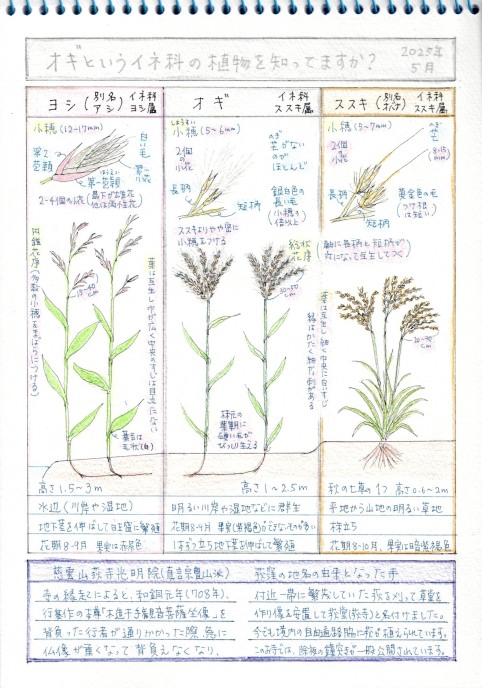 オギというイネ科の植物を知ってますか?
2025年
5月
ヨシ(別名 アシ) イネ科 ヨシ属
小穂(12~17mm)
白い毛
第2苞穎
第一小花
第一苞穎
2~4個の小花(最下が雄花 他は両性花)
円錐花序(多数の小穂をまばらにつける)
15~40cm
葉は互生し巾が広く中央のすじは目立たない
高さ1.5~3m
水辺(川岸や湿地)
地下茎を伸ばして旺盛に繁殖
花期8-9月 果実は赤褐色
オギ イネ科 ススキ属
小穂(5~6mm)
しょうすい
2個の小花
のぎ
芒がないのがほとんど
長柄
短柄
銀白色の長い毛(小穂の倍以上)
ススキよりやや密に小穂をつける
総状花序
葉は互生し細く中央に白いすじ
縁はかたく細かい刺がある
高さ1~2.5m
明るい川岸や湿地などに群生
1本ずつ立ち地下茎を伸ばして繁殖
ススキ(別名 オバナ) イネ科 ススキ属
小穂(5~7mm)
2個の小花
のぎ
芒
8~15mm
長柄
短柄
黄金色の毛(つけ根は短い)
(軸に長柄と短柄が対になって互生してつく)
20~30cm
秋の七草の1つ 高さ0.6~2m
平地から山地の明るい草地
株立ち
花期8-10月、果実は暗紫褐色
慈雲山荻寺光明院(真言宗豊山派)
寺の縁起によると、和銅元年(708年)、
行基作の本尊「木造千手観音菩薩坐像」を
背負った行者が通りかかった際、急に
仏像が重くなって背負えなくなり、
荻窪の地名の由来となった寺
付近一帯に繁茂していた荻を刈って草堂を
作り像を安置して荻堂(荻寺)と名付けました。
今でも境内の自由通路脇に荻が植えられています。
このお寺では、除夜の鐘突きが一般公開されています。